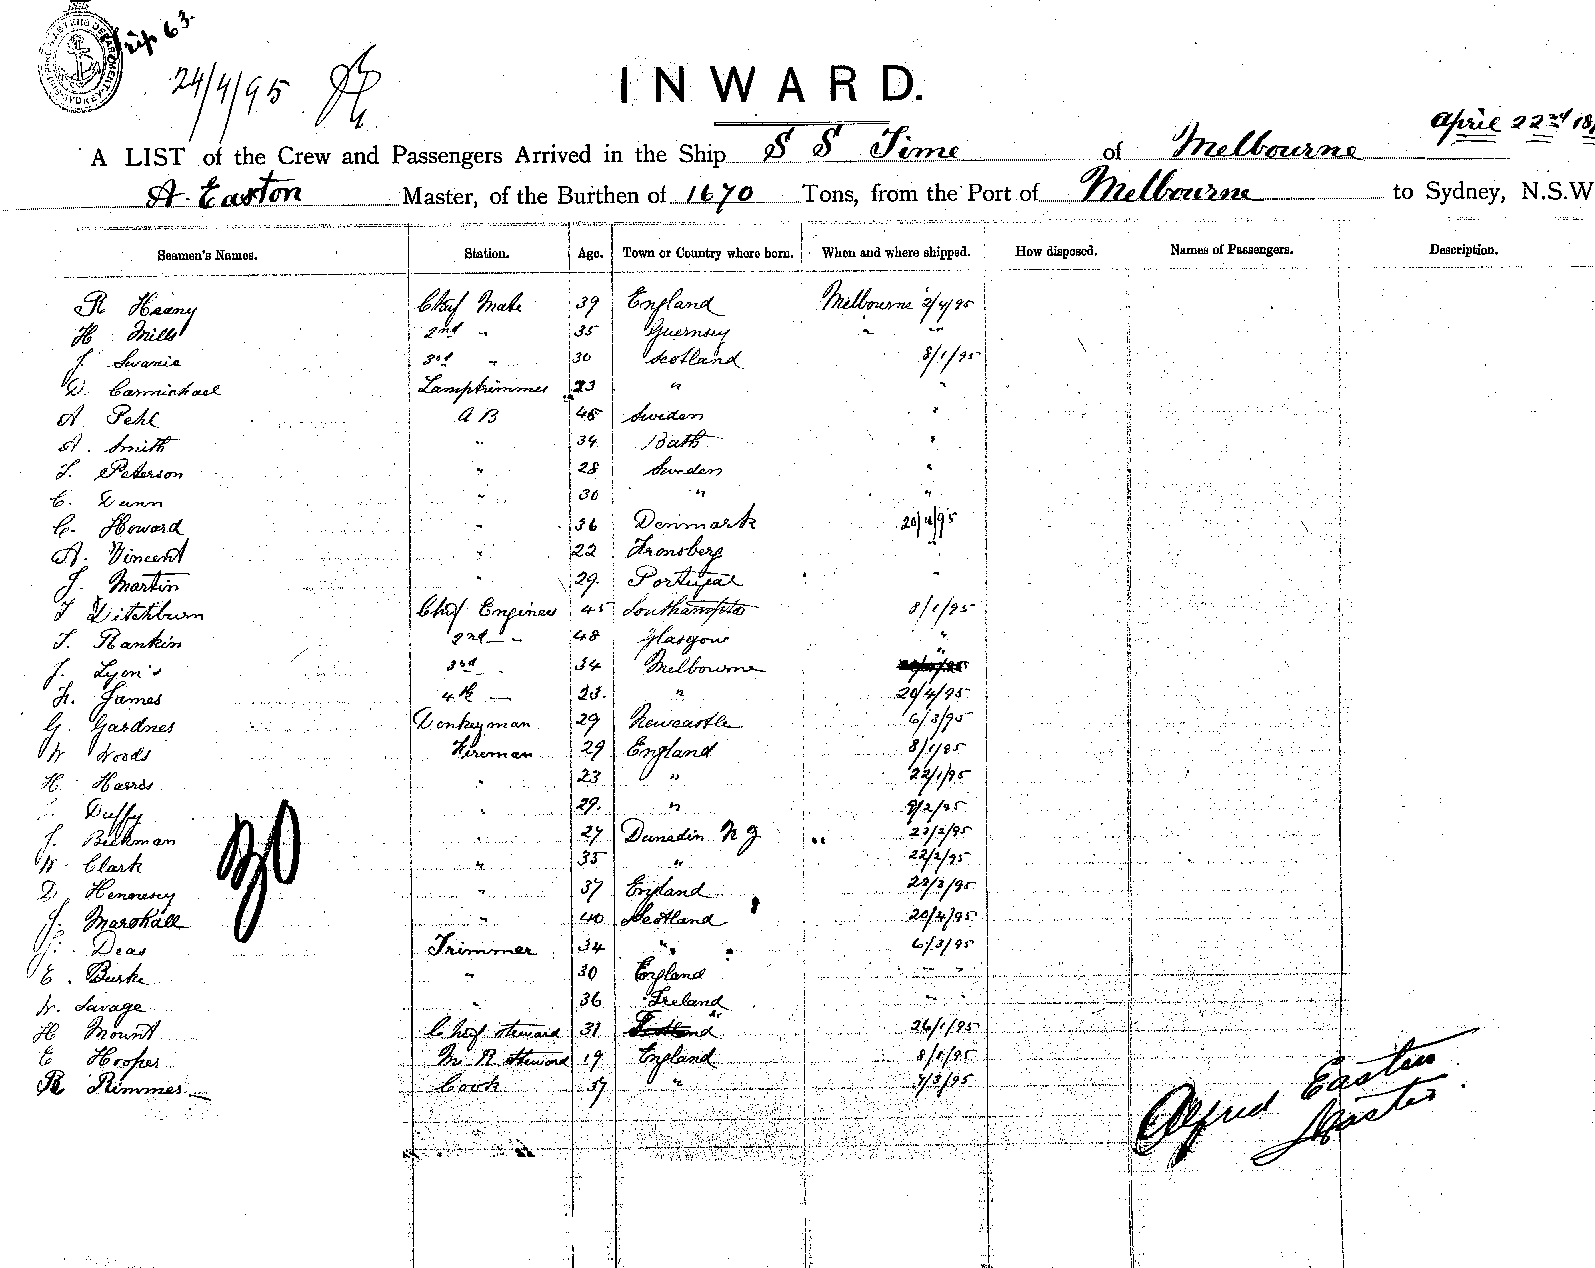 Trip 63.
24/4/95
INWARD.
April 22nd 18
A LIST of the Crew and Passengers Arrived in the Ship S S Time of Melbourne
A. Easton Master, of the Burthen of 1670 Tons, from the Port of Melbourne to Sydney, N.S.W
Seamen's Names. Station. Age. Town or Country where born. When and where shipped. How disposed. Names of Passengers. Description.
R Heany Chief Mate 39 England Melbourne 2/4/95
H Mills 2nd " 35 Guernsey " "
J. Swanie 3rd " 30 Scotland 8/1/95
D. Carmichael Lamptrimmer 23 " "
A Pehl A B 45 Sweden "
A. Smith " 34 Bath "
T. Peterson " 28 Sweden "
C. Dunn " 30 " "
C. Howard " 36 Denmark 20/4/95
A. Vincent " 22 Fronsberg "
J. Martin " 29. Portugal "
T Ditchburn Chief Engineer 45 Southampton 8/1/95
T. Rankin 2nd " 48 Glasgow "
J. Lyon's 3rd 34 Melbourne "
H. James 4th 23. " 20/4/95
G. Gardner Donkeyman 29 Newcastle 6/3/95
W Woods Fireman 29 England 8/1/95
H. Harris " 23 " 22/1/95
Duffy " 29. " 9/2/95
J. Beekman " 27 Dunedin N Z " 23/2/95
W. Clark " 35 " 22/2/95
D. Hennesey " 37 England 22/3/95
J. Marshall " 40 Scotland 20/4/95
J. Deas Trimmer 34 " 6/3/95
E. Burke " 30 England " "
W. Savage " 36 Ireland " "
H Mount Chief Steward 31 26/1/95
E Hooper M. R Steward 19 England 8/1/95
R Rimmer Cook 37 " 7/3/95
Alfred Easton
Master